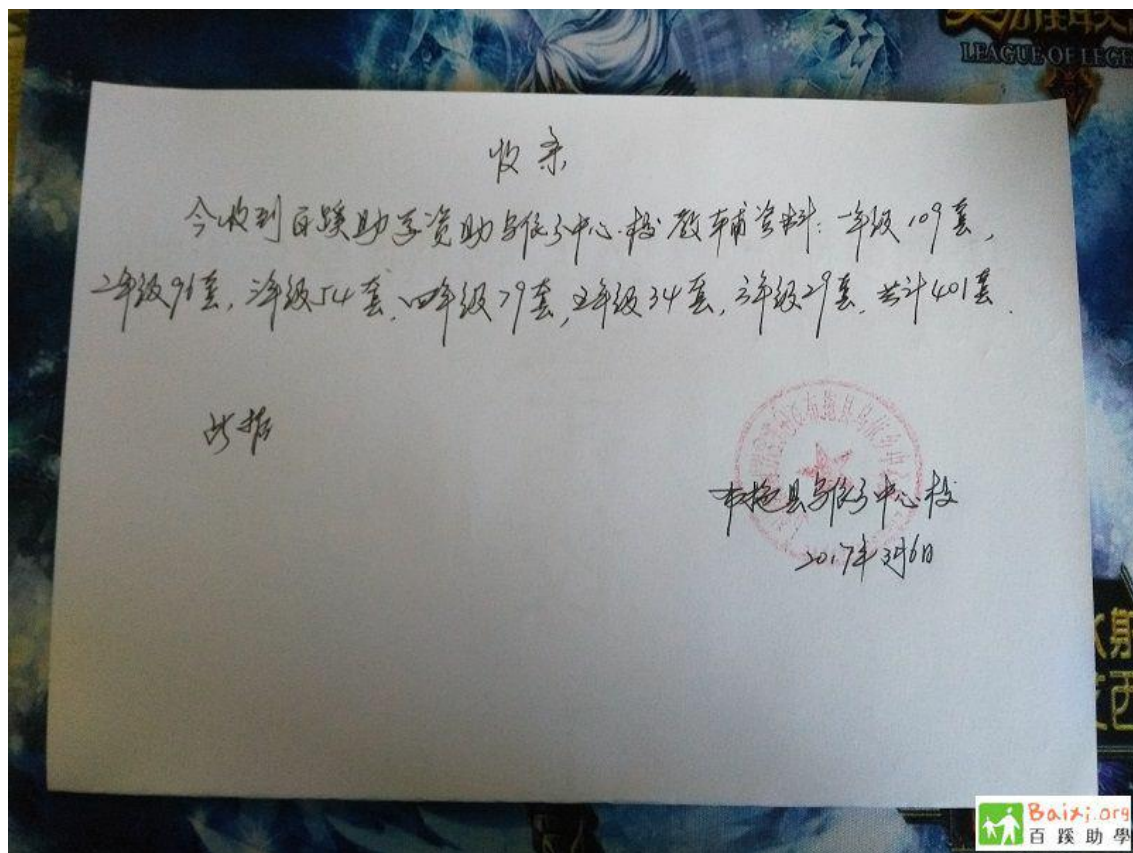 LEAGUE OF LEGE
收条
今收到百蹊助学资助乌依乡中心校教辅资料:一年级109套,
二年级96套,三年级54套,四年级79套,五年级34套,六年级29套,共计401套.
此据
布拖县乌依乡中心校
布拖县乌依乡中心校
2017年3月6日
Baixi.org
百蹊助學